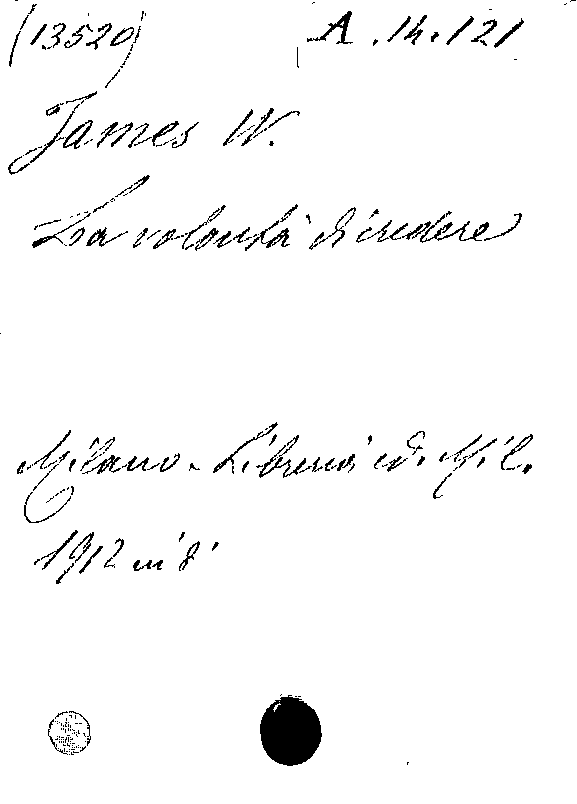 (13520) A.14.121
James W.
La volontà di credere
Milano - Libreria ed. Mil.
1912 in 8°